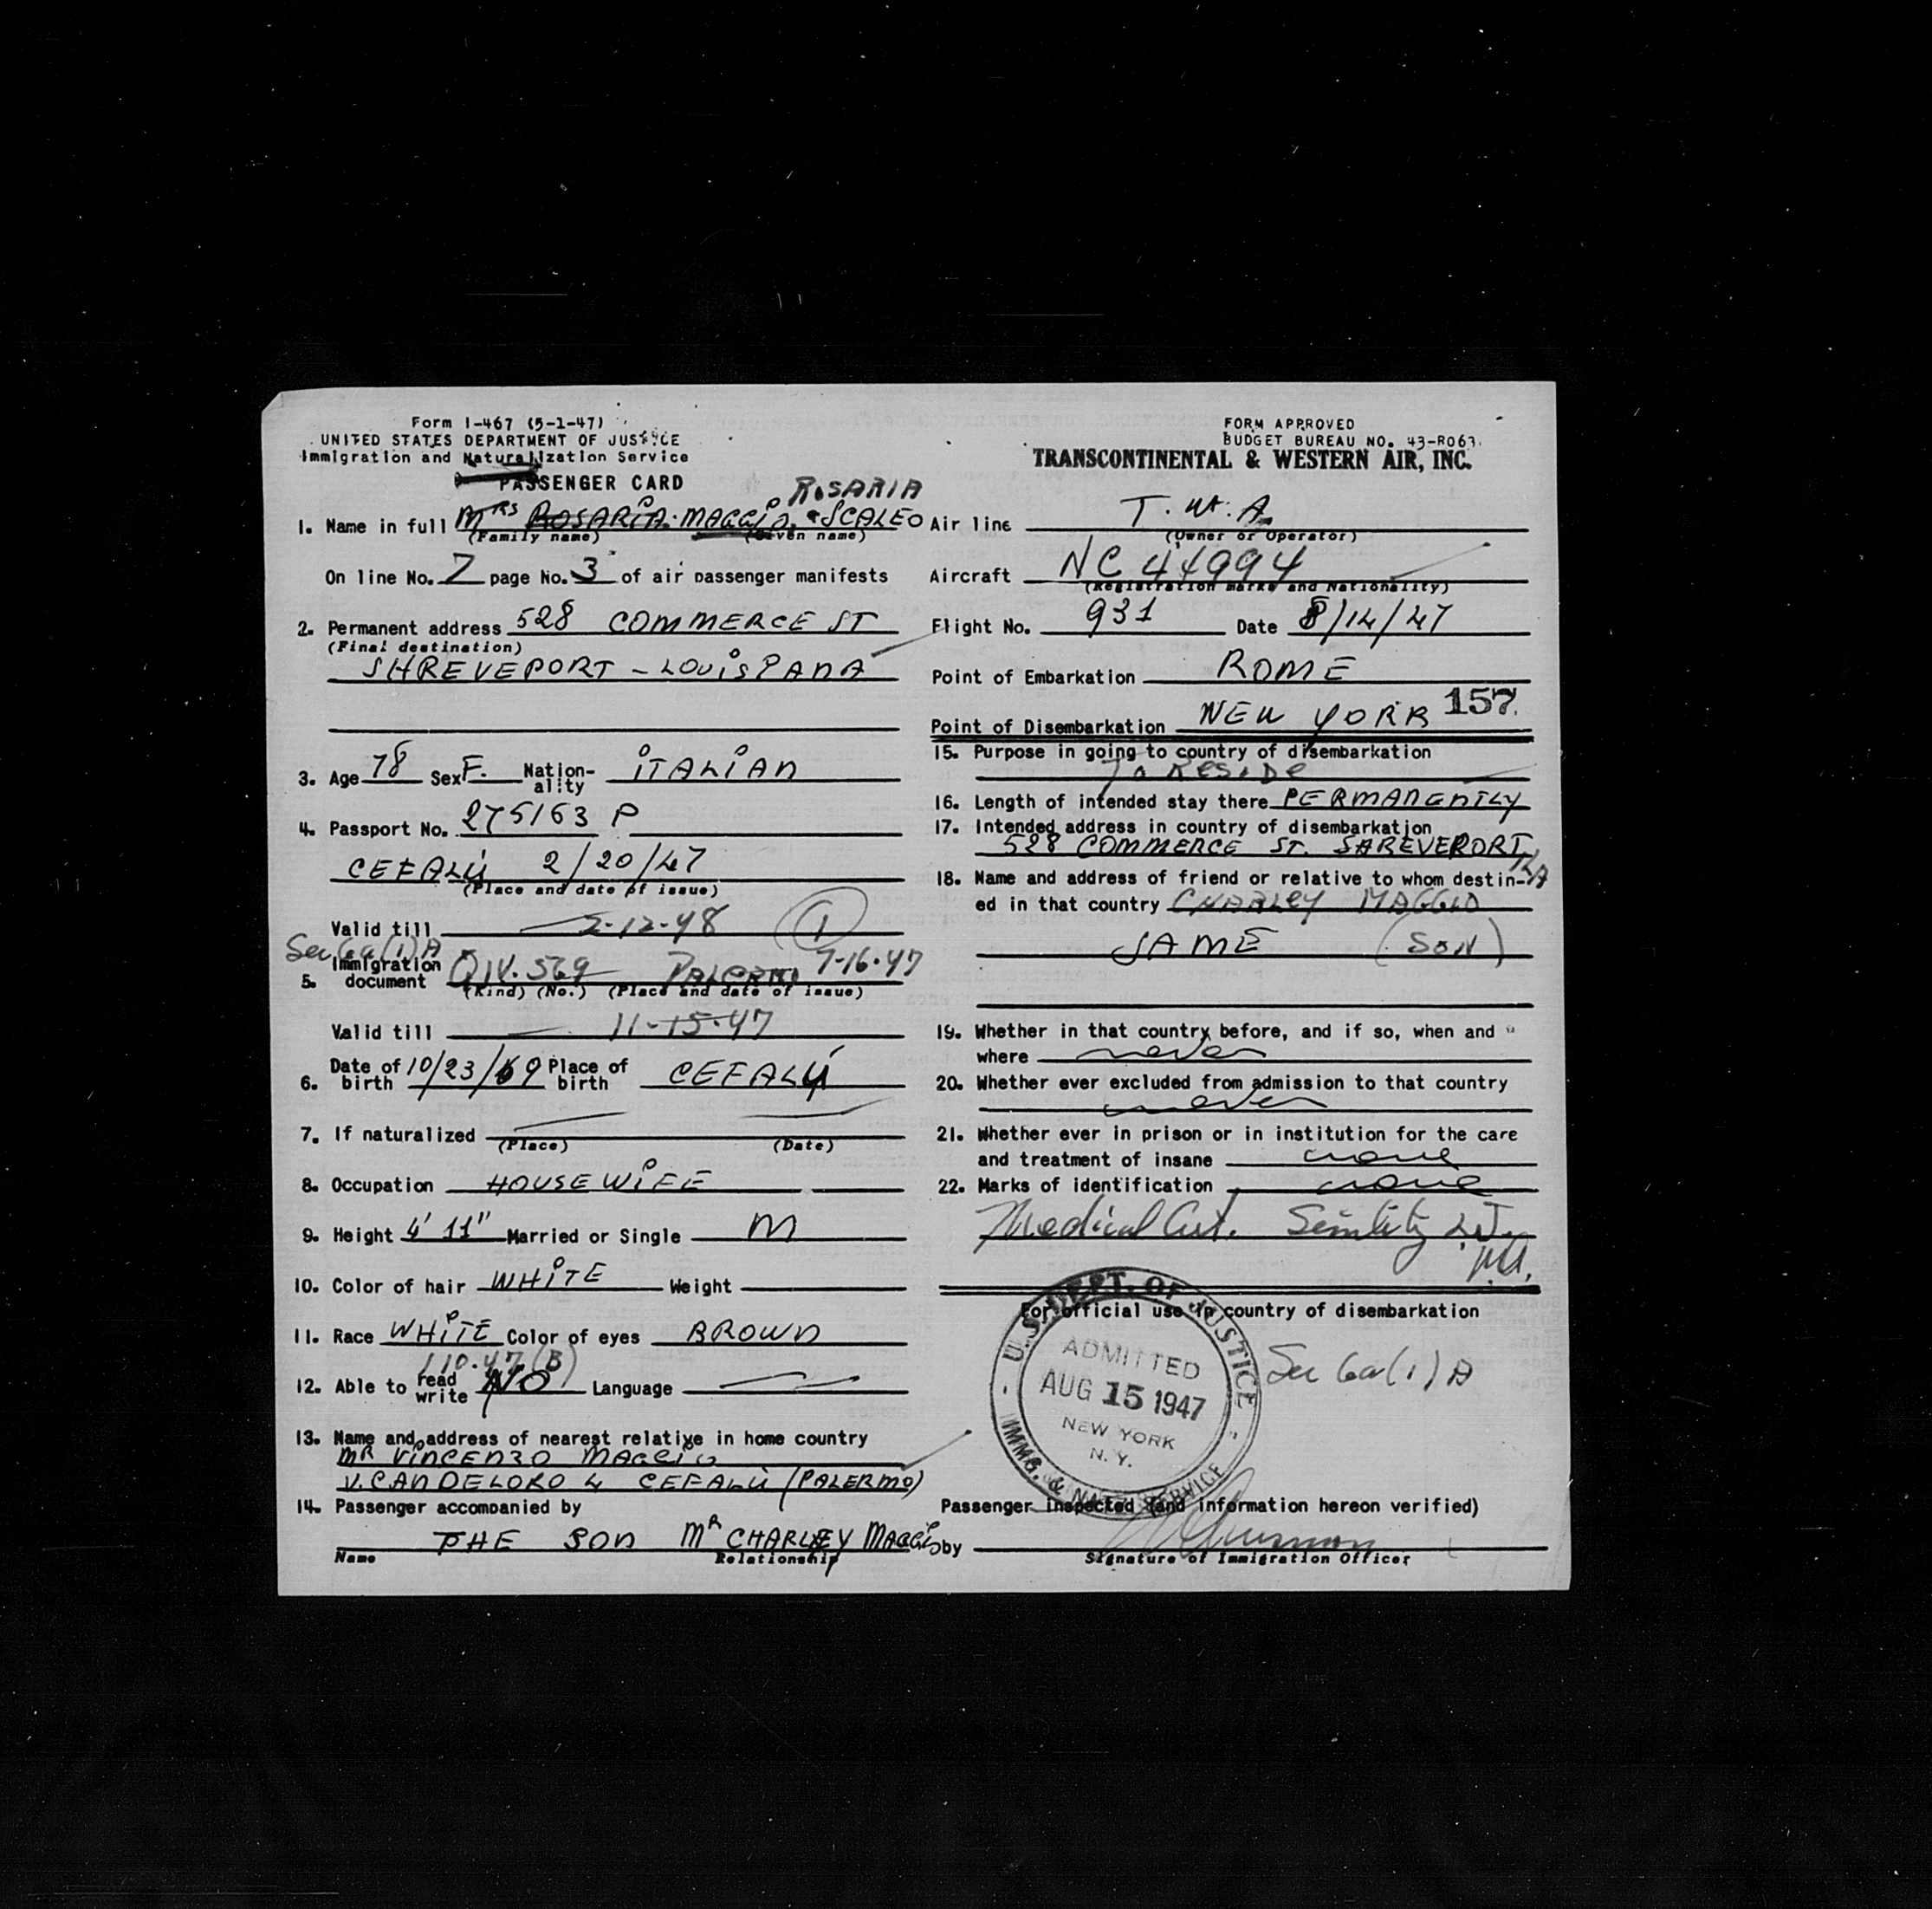 Form I-467 (5-1-47)
UNITED STATES DEPARTMENT OF JUSTICE
Immigration and Naturalization Service
PASSENGER CARD
FORM APPROVED
BUDGET BUREAU NO. 43-R063.
TRANSCONTINENTAL & WESTERN AIR, INC.
ROSARIA
1. Name in full MRS ROSARIA. MAGGIO. SCALEO
(Family name) (Given name)
On line No. 7 page No. 3 of air passenger manifests
2. Permanent address 528 COMMERCE ST
(Final destination)
SHREVEPORT - LOUISIANA
3. Age 78 Sex F. Nationality ITALIAN
4. Passport No. 275163 P
CEFALÙ 2/20/47
(Place and date of issue)
Valid till 2-12-48 1
Sec 6a(1)A
5. Immigration document QIV. 569 PALERMO 7-16-47
(Kind) (No.) (Place and date of issue)
Valid till 11-15-47
6. Date of birth 10/23/69 Place of birth CEFALÙ
7. If naturalized
(Place) (Date)
8. Occupation HOUSEWIFE
9. Height 4' 11" Married or Single M
10. Color of hair WHITE Weight
11. Race WHITE Color of eyes BROWN
110.47(B)
12. Able to read write NO Language
13. Name and address of nearest relative in home country
MR VINCENZO MAGGIO
V. CANDELORO 4 CEFALÙ (PALERMO)
14. Passenger accompanied by
THE SON MR CHARLEY MAGGIO
Name Relationship
Air line T.W.A.
(Owner or Operator)
Aircraft NC 44994
(Registration marks and Nationality)
Flight No. 931 Date 8/14/47
Point of Embarkation ROME
Point of Disembarkation NEW YORK 157
15. Purpose in going to country of disembarkation
To RESIDE
16. Length of intended stay there PERMANENTLY
17. Intended address in country of disembarkation
528 COMMERCE ST. SHREVEPORT LA
18. Name and address of friend or relative to whom destined in that country CHARLEY MAGGIO
SAME (SON)
19. Whether in that country before, and if so, when and
where never
20. Whether ever excluded from admission to that country
never
21. Whether ever in prison or in institution for the care
and treatment of insane none
22. Marks of identification none
Medical Cert. Senility
For official use in country of disembarkation
U.S. DEPT. OF JUSTICE
ADMITTED
AUG 15 1947
NEW YORK
N. Y.
IMMG. & NATZ. SERVICE
Sec 6a(1)A
Passenger inspected (and information hereon verified)
by
Signature of Immigration Officer